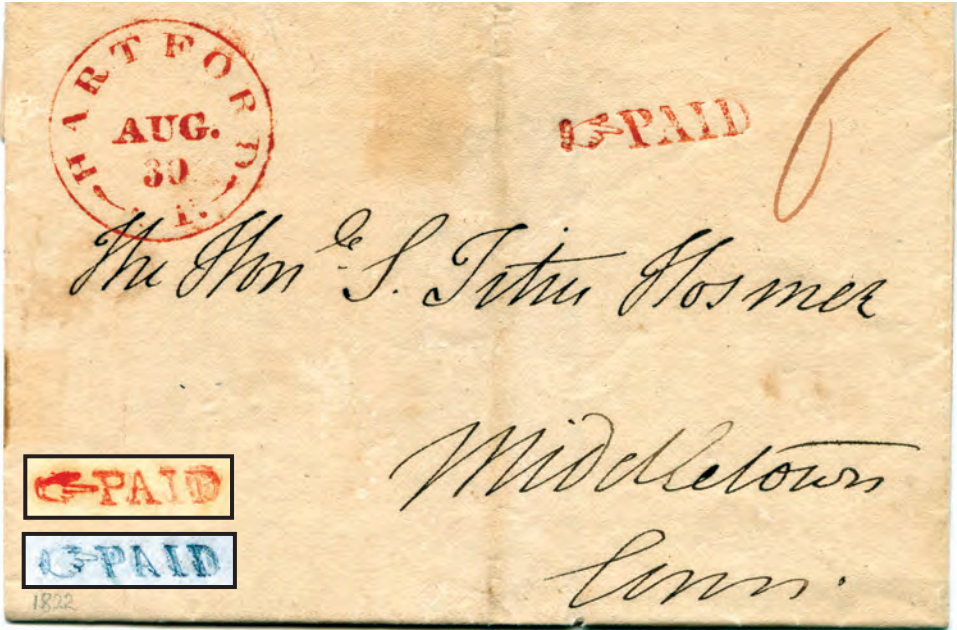 HARTFORD
AUG.
30
PAID
6
The Honle S. Titus Hosmer
Middletown
Conn.
PAID
PAID
1822